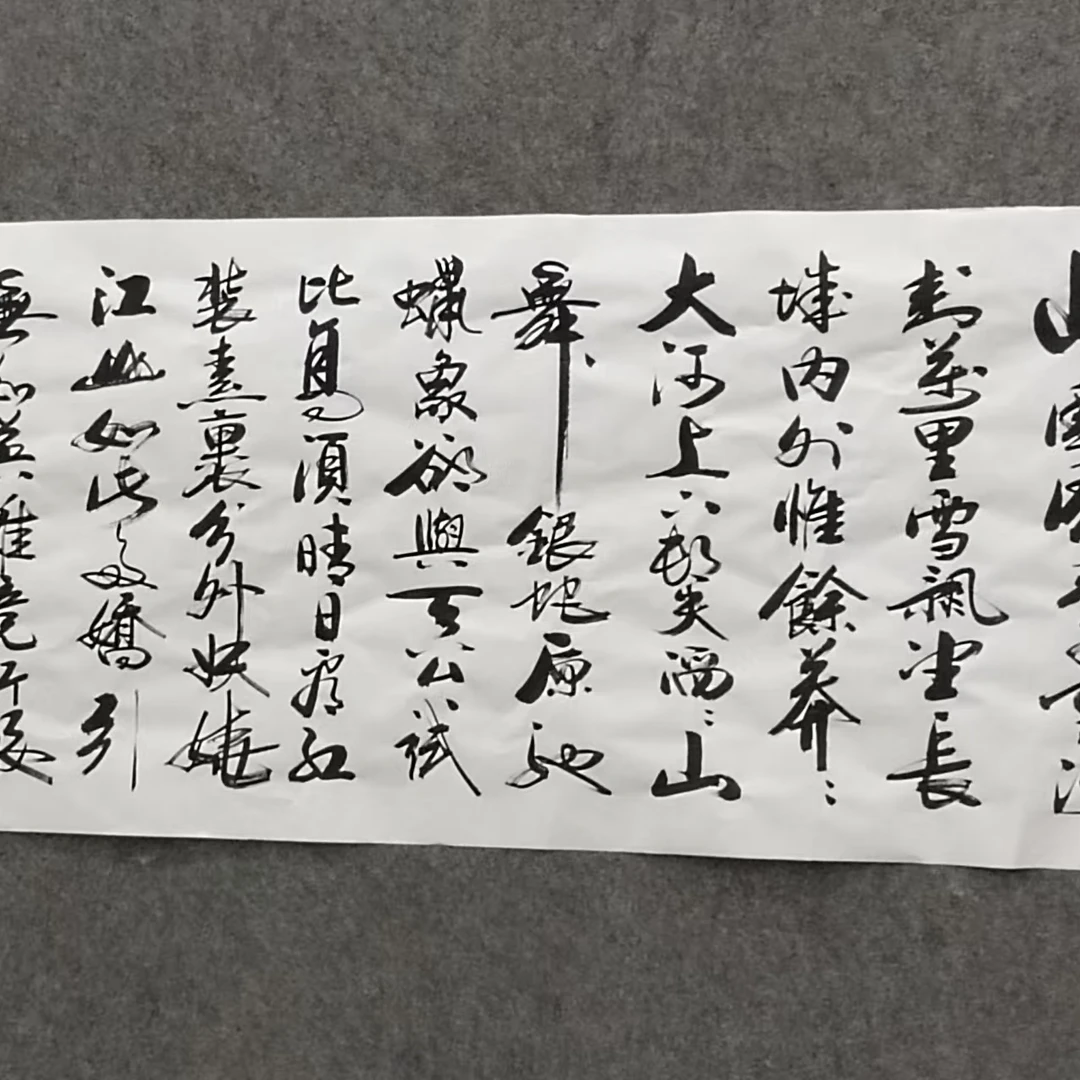 封萬里雪飄望長
城内外惟餘莽〻
大河上下頓失滔〻山
舞銀蛇原馳
蠟象欲與天公試
比高須晴日看紅
裝素裹分外妖嬈
江山如此多嬌引
無數英雄競折腰